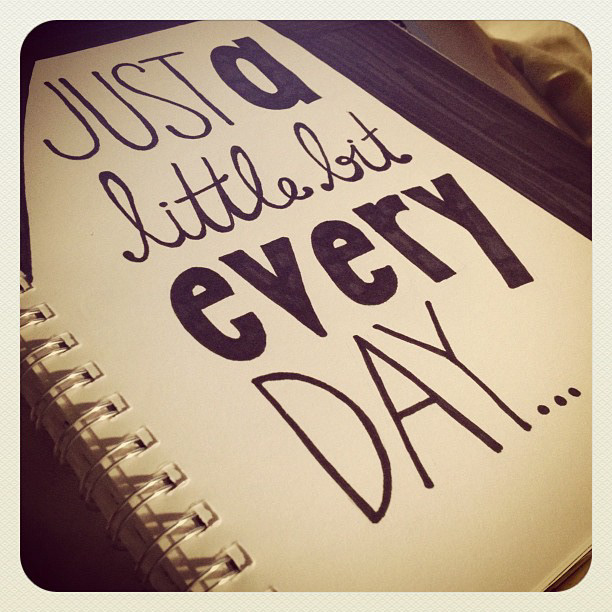 JUST a
little bit
every
DAY...